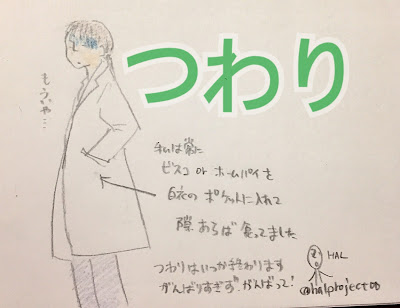 つわり
もうヤ…
私は常に
ビスコ or ホームパイを
白衣の ポケットに入れて
隙あらば 食ってました
つわりはいつか終わります
がんばりすぎず、がんばって！
HAL
@halproject00